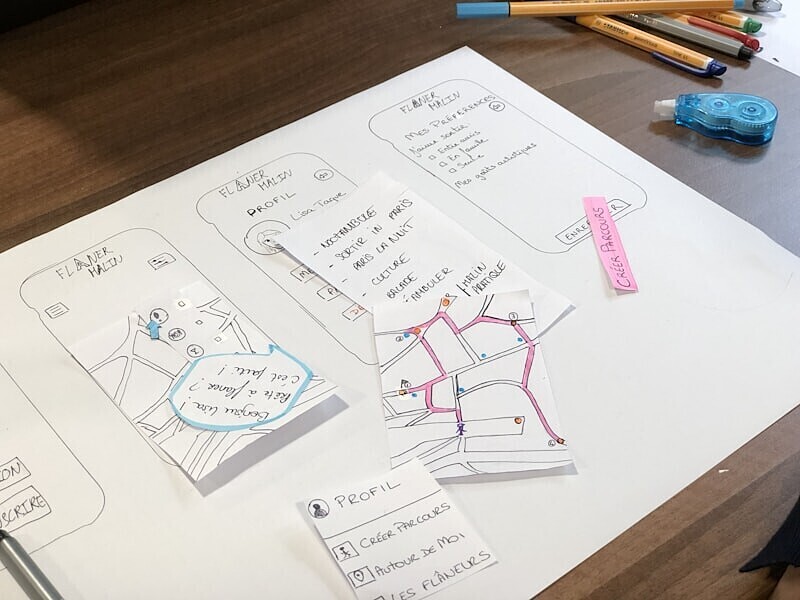 FLÂNER
MALIN
FLÂNER MALIN
PROFIL
Lisa Taque
FLÂNER
MALIN
MES PRÉFÉRENCES
J'aime sortir
Entre amis
En famille
Seule
Mes goûts artistiques
CRÉER PARCOURS
- NOCTAMBULE
- SORTIR IN PARIS
- PARIS LA NUIT
- CULTURE
BALADE
MALIN
PRATIQUE
Bonjour Lisa !
Prête à flâner ?
C'est parti !
PROFIL
CRÉER PARCOURS
AUTOUR DE MOI
LES FLÂNEURS